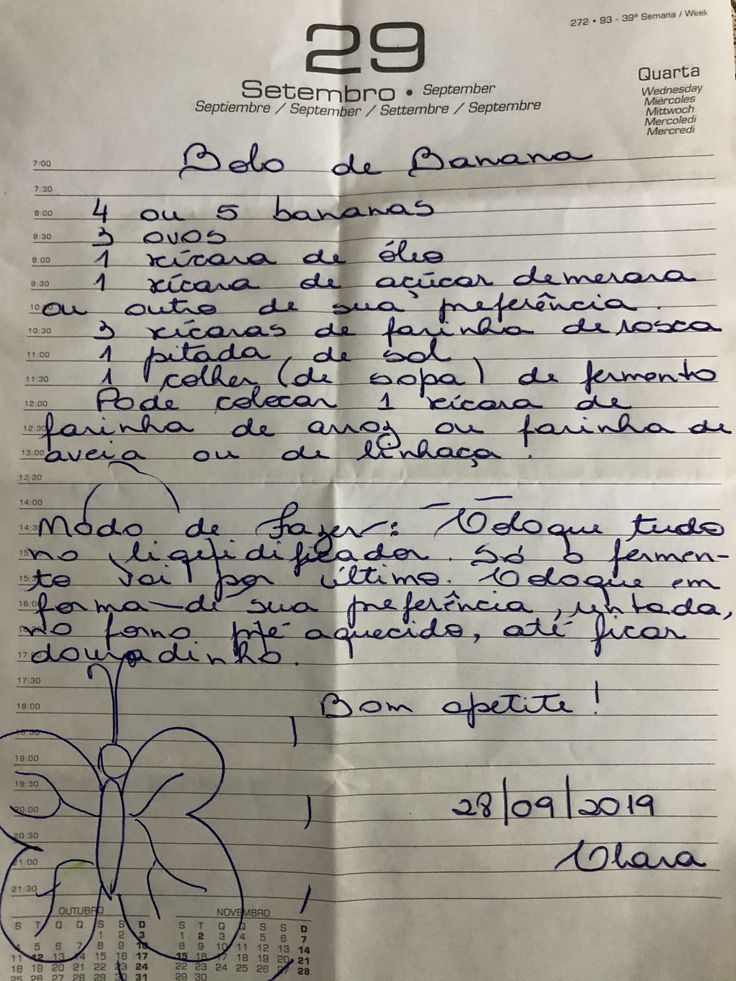 272 • 93 - 39ª Semana / Week
29
Setembro • September
Septiembre / September / Settembre / Septembre
Quarta
Wednesday
Miércoles
Mittwoch
Mercoledi
Mercredi
7:00 Bolo de Banana
7:30
8:00 4 ou 5 bananas
8:30 3 ovos
9:00 1 xícara de óleo
9:30 1 xícara de açúcar demerara
10: ou outro de sua preferência.
10:30 3 xícaras de farinha de rosca
11:00 1 pitada de sal
11:30 1 colher (de sopa) de fermento
12:00 Pode colocar 1 xícara de
12:30 farinha de arroz ou farinha de
13:00 aveia ou de linhaça.
13:30
14:00
14:3 Modo de fazer: Coloque tudo
15: no liqüidificador. Só o fermen-
15:3 to vai por último. Coloque em
16:0 forma de sua preferência, untada,
no forno pré aquecido, até ficar
17:0 douradinho.
17:30
18:00 Bom apetite!
18:30
19:00
19:30
20:00 28/09/2019
20:30
21:00 Chara
21:30
OUTUBRO
S T Q Q S S D
1 2 3
4 5 6 7 8 9 10
11 12 13 14 15 16 17
18 19 20 21 22 23 24
25 26 27 28 29 30 31
NOVEMBRO
S T Q Q S S D
1 2 3 4 5 6 7
8 9 10 11 12 13 14
15 16 17 18 19 20 21
22 23 24 25 26 27 28
29 30